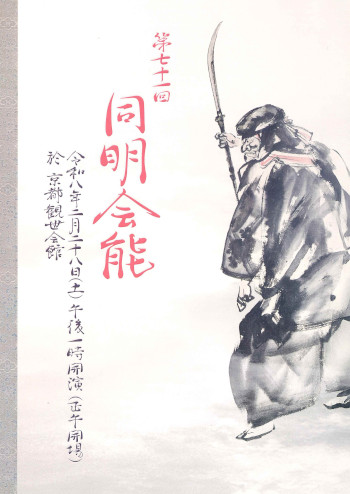 第七十一回
同明会能
令和八年二月二十八日(土)午後一時開演(正午開場)
於 京都觀世会館